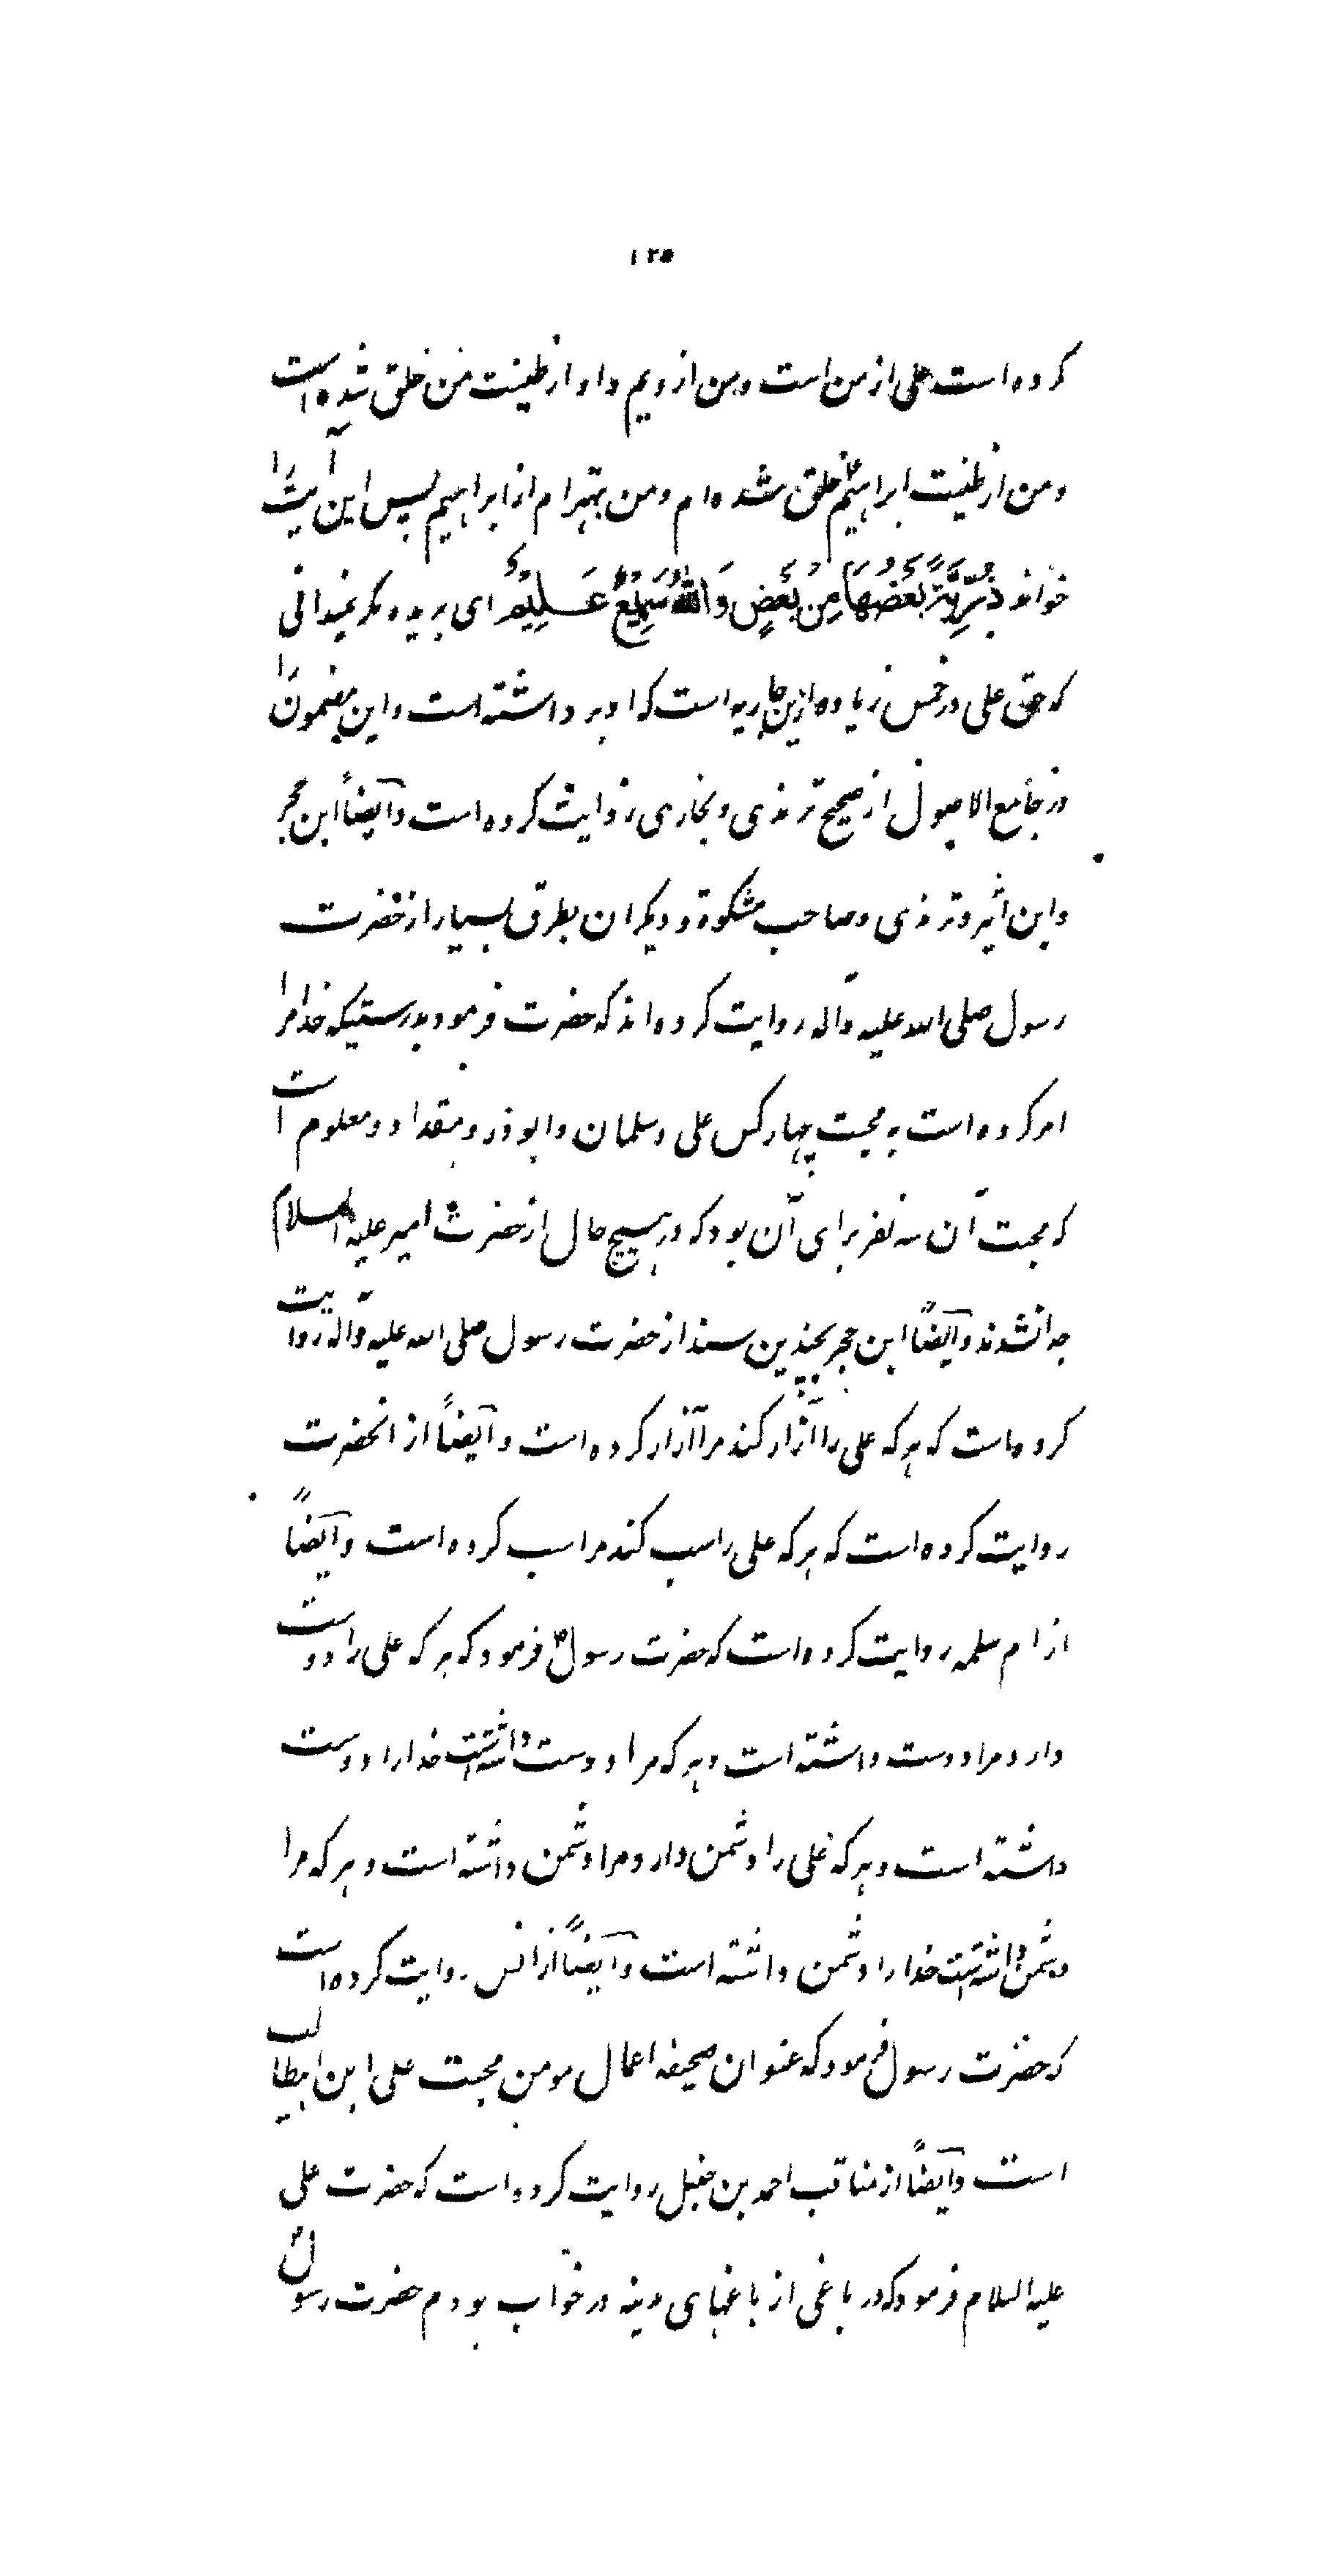 ۱۲۵
کرده است علی از من است و من از ویم و او از طینت من خلق شده است
و من از طینت ابراهیم خلق شده ام و من بهترام از ابراهیم پس این آیت را
خواند ذُرِّیَّةً بَعْضُهَا مِنْ بَعْضٍ وَاللّٰهُ سَمِیعٌ عَلِیمٌ ای بریده مکر نمیدانی
که حق علی در خمس زیاده ازین جاریه است که او برداشته است و این مضمون را
در جامع الاصول از صحیح ترمذی و بخاری روایت کرده است و ایضاً ابن حجر
و ابن اثیر و ترمذی و صاحب مشکوة و دیکران بطرق بسیار از حضرت
رسول صلی الله علیه و آله روایت کرده اند که حضرت فرمود بدرستیکه خدا مرا
امر کرده است به محبت چهار کس علی و سلمان و ابوذر و مقداد و معلوم است
که محبت آن سه نفر برای آن بود که در هیچ حال از حضرت امیر علیه السلام
جدا نشدند و ایضاً ابن حجر بچندین سند از حضرت رسول صلی الله علیه و آله روایت
کرده است که هر که علی را آزار کند مرا آزار کرده است و ایضاً از انحضرت
روایت کرده است که هر که علی را سب کند مرا سب کرده است و ایضاً
از ام سلمه روایت کرده است که حضرت رسول ص فرمود که هر که علی را دوست
دارد مرا دوست داشته است و هر که مرا دوست داشته است خدا را دوست
داشته است و هر که علی را دشمن دارد مرا دشمن داشته است و هر که مرا
دشمن داشته است خدا را دشمن داشته است و ایضاً از انس روایت کرده است
که حضرت رسول فرمود که عنوان صحیفه اعمال مومن محبت علی ابن ابیطالب
است و ایضاً از مناقب احمد بن حنبل روایت کرده است که حضرت علی
علیه السلام فرمود که در باغی از باغهای مدینه در خواب بودم حضرت رسول ص